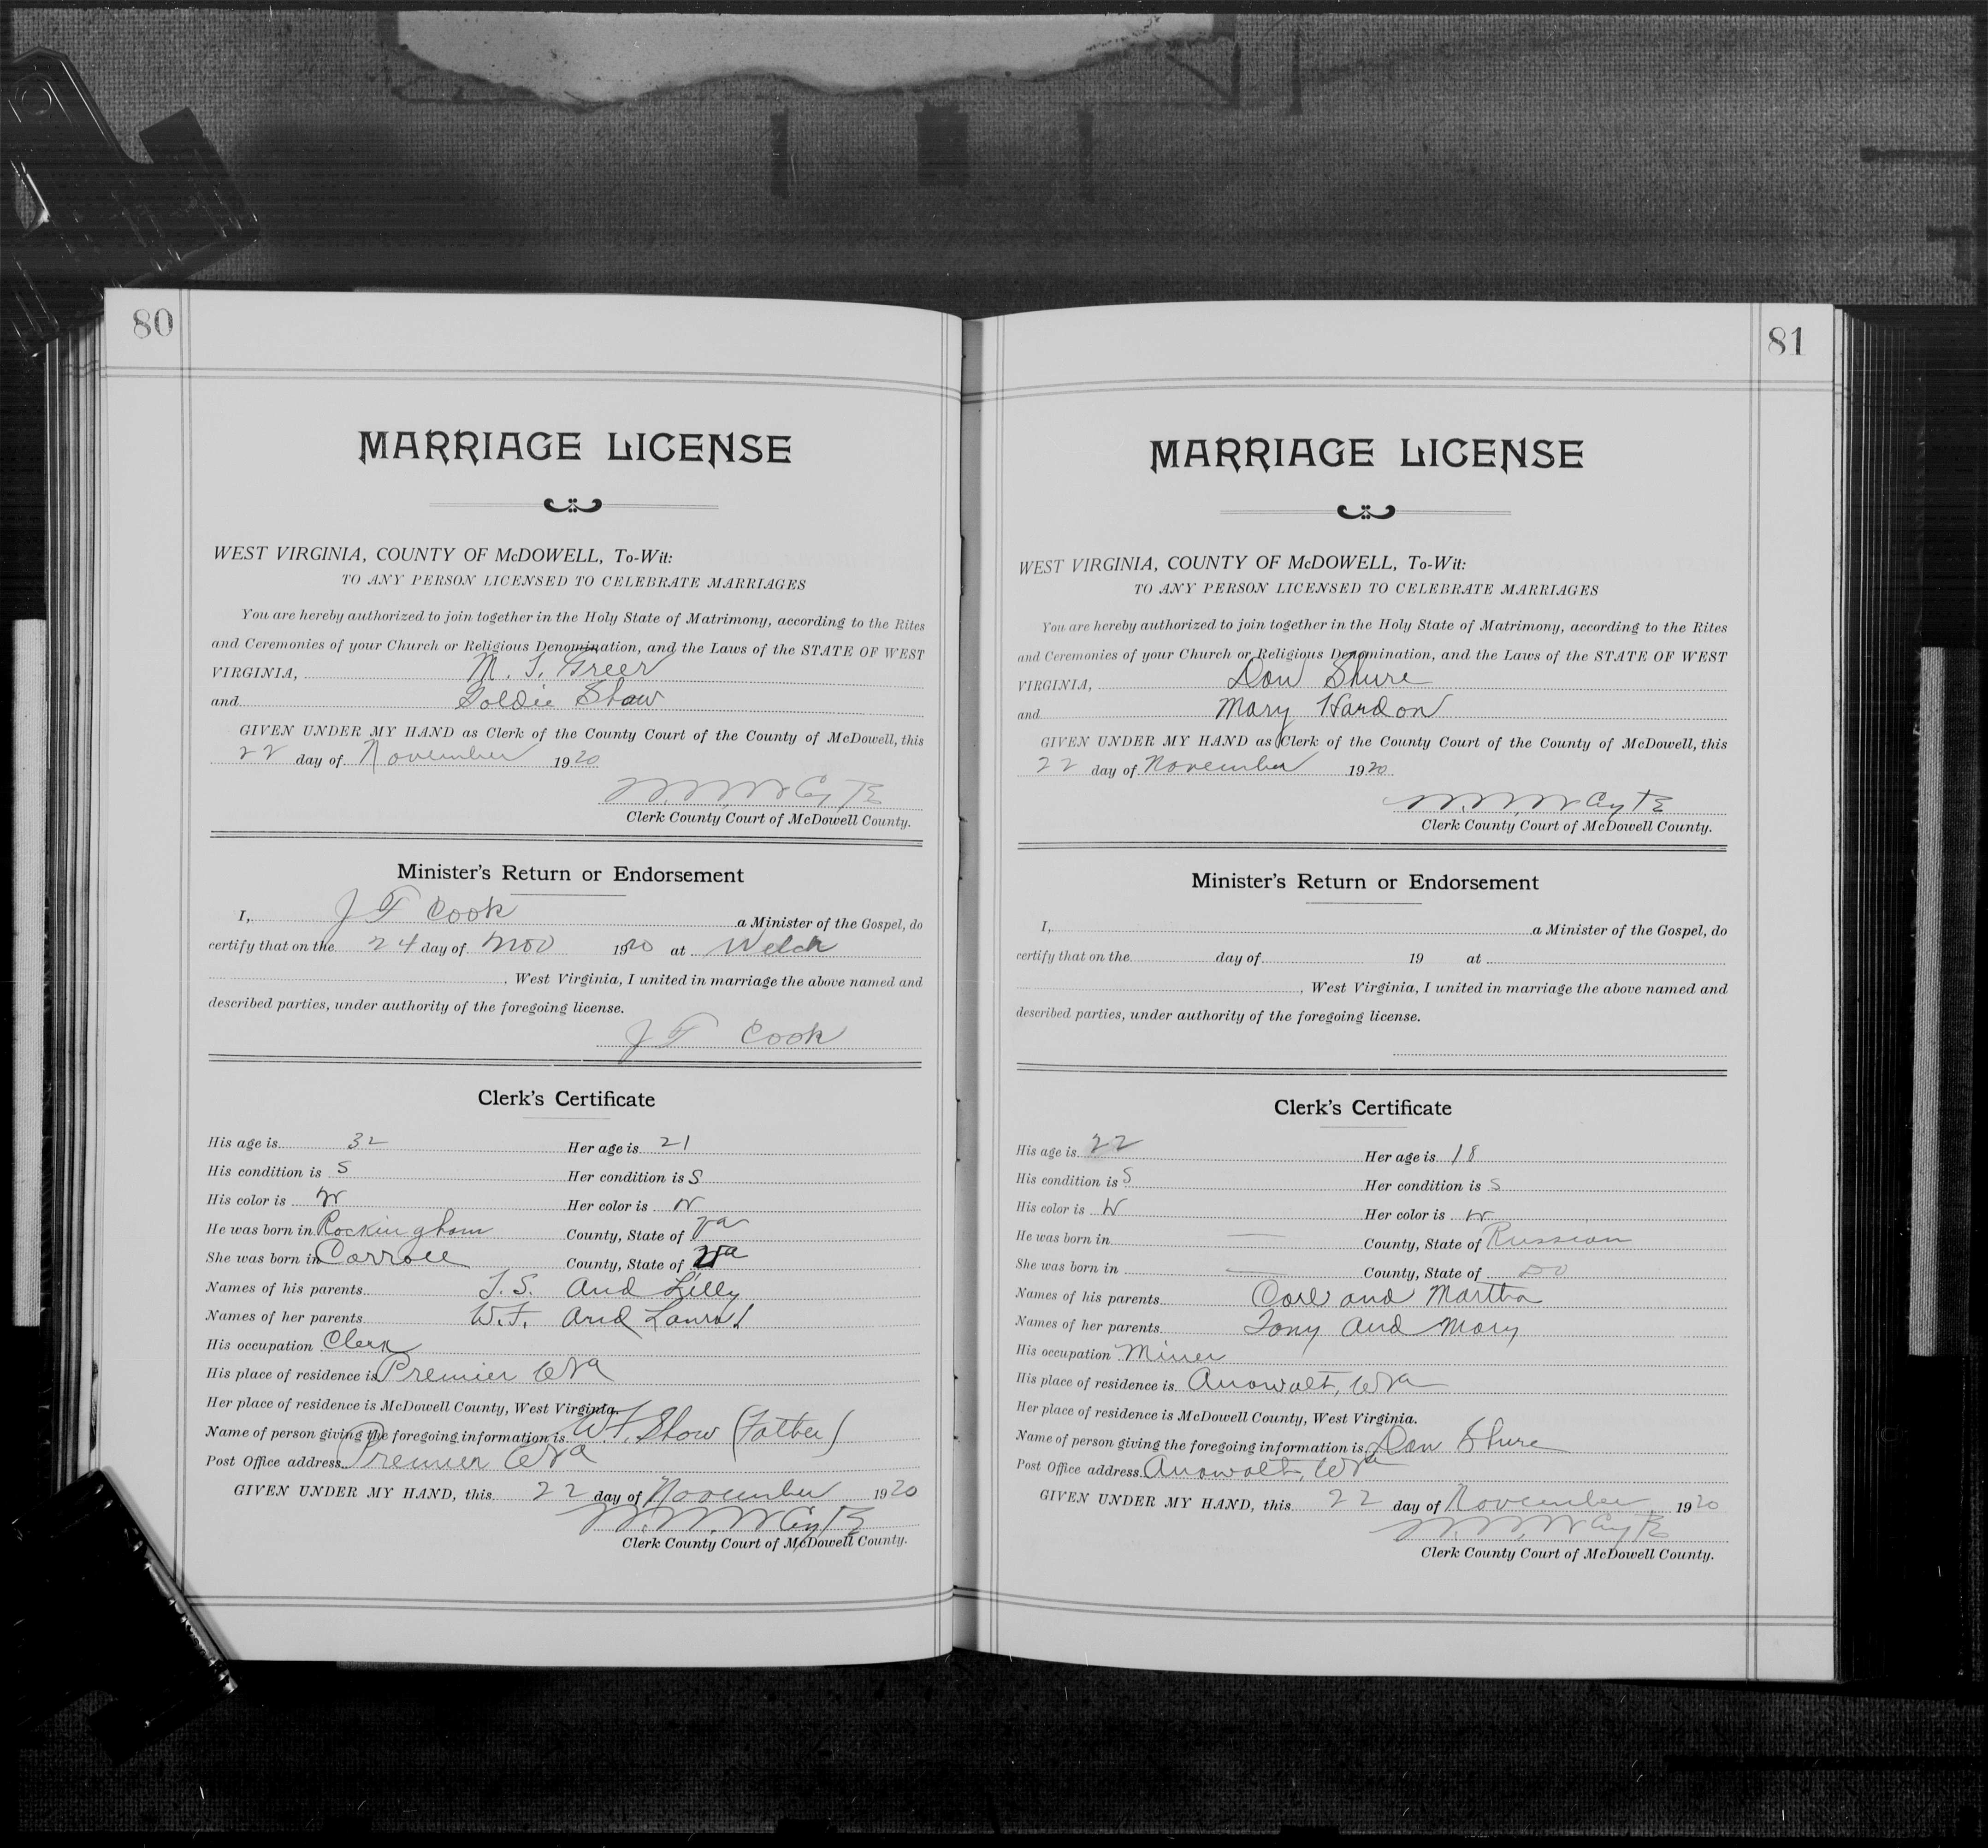 80
MARRIAGE LICENSE
WEST VIRGINIA, COUNTY OF McDOWELL, To-Wit:
TO ANY PERSON LICENSED TO CELEBRATE MARRIAGES
You are hereby authorized to join together in the Holy State of Matrimony, according to the Rites
and Ceremonies of your Church or Religious Denomination, and the Laws of the STATE OF WEST
VIRGINIA, M. S. Greer
and Goldie Shaw
GIVEN UNDER MY HAND as Clerk of the County Court of the County of McDowell, this
22 day of November 1920
Clerk County Court of McDowell County.
Minister's Return or Endorsement
I, J F Cook a Minister of the Gospel, do
certify that on the 24 day of Nov 1920 at Welch
, West Virginia, I united in marriage the above named and
described parties, under authority of the foregoing license.
J F Cook
Clerk's Certificate
His age is 32 Her age is 21
His condition is S Her condition is S
His color is W Her color is W
He was born in Rockingham County, State of Va
She was born in Carroll County, State of Va
Names of his parents J. S. And Lilly
Names of her parents W. F. And Laura
His occupation Clerk
His place of residence is Premier WVa
Her place of residence is McDowell County, West Virginia.
Name of person giving the foregoing information is W. F. Shaw (Father)
Post Office address Premier WVa
GIVEN UNDER MY HAND, this 22 day of November 1920
Clerk County Court of McDowell County.
81
MARRIAGE LICENSE
WEST VIRGINIA, COUNTY OF McDOWELL, To-Wit:
TO ANY PERSON LICENSED TO CELEBRATE MARRIAGES
You are hereby authorized to join together in the Holy State of Matrimony, according to the Rites
and Ceremonies of your Church or Religious Denomination, and the Laws of the STATE OF WEST
VIRGINIA, Dan Shure
and Mary Hardon
GIVEN UNDER MY HAND as Clerk of the County Court of the County of McDowell, this
22 day of November 1920
Clerk County Court of McDowell County.
Minister's Return or Endorsement
I, a Minister of the Gospel, do
certify that on the day of 19 at
, West Virginia, I united in marriage the above named and
described parties, under authority of the foregoing license.
Clerk's Certificate
His age is 22 Her age is 18
His condition is S Her condition is S
His color is W Her color is W
He was born in — County, State of Russian
She was born in — County, State of Do
Names of his parents Carl and Martha
Names of her parents Tony And Mary
His occupation Miner
His place of residence is Anawalt, WVa
Her place of residence is McDowell County, West Virginia.
Name of person giving the foregoing information is Dan Shure
Post Office address Anawalt, WVa
GIVEN UNDER MY HAND, this 22 day of November 1920
Clerk County Court of McDowell County.